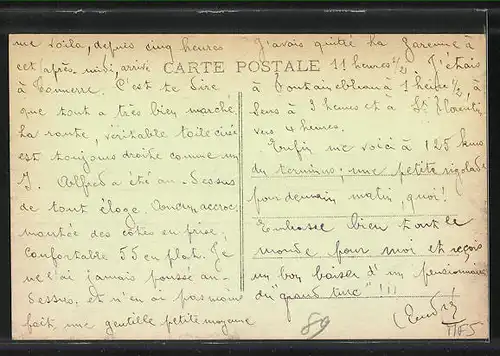 me voila, depuis cinq heures
cet après-midi, arrivé
à Tonnerre. C'est te dire
que tout a très bien marché.
La route, véritable toile cirée
est toujours droite comme un
I. Alfred a été au-dessus
de tout éloge. Aucun accroc,
montée des côtes en prise,
confortable 55 en plat. Je
ne l'ai jamais poussé au-
dessus, et n'en ai pas moins
fait, une gentille petite moyenne
CARTE POSTALE
J'avais quitté La Garenne à
11 heures 1/2. J'étais
à Fontainebleau à 1 heure 1/2, à
Sens à 3 heures et à St Florentin
vers 4 heures.
Enfin me voici à 125 kms
du terminus; une petite rigolade
pour demain matin, quoi!
Embrasse bien tout le
monde pour moi et reçois
un bon baiser d'un pensionnaire
du "grand turc" !!!
André
89